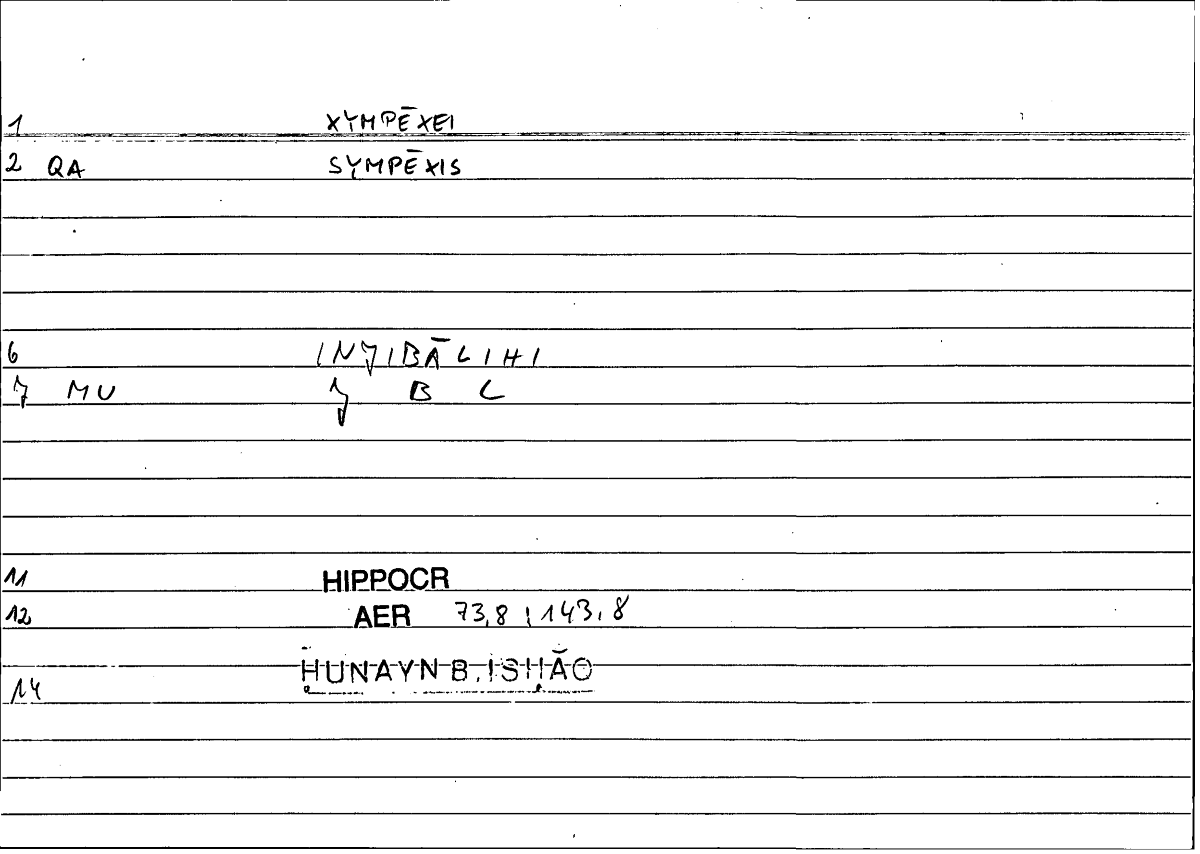 1 XYMPĒXEI
2 QA SYMPĒXIS
6 INJIBĀLIHI
7 MU J B L
11 HIPPOCR
12 AER 73,8 ; 143,8
14 ḤUNAYN B. ISḤĀQ